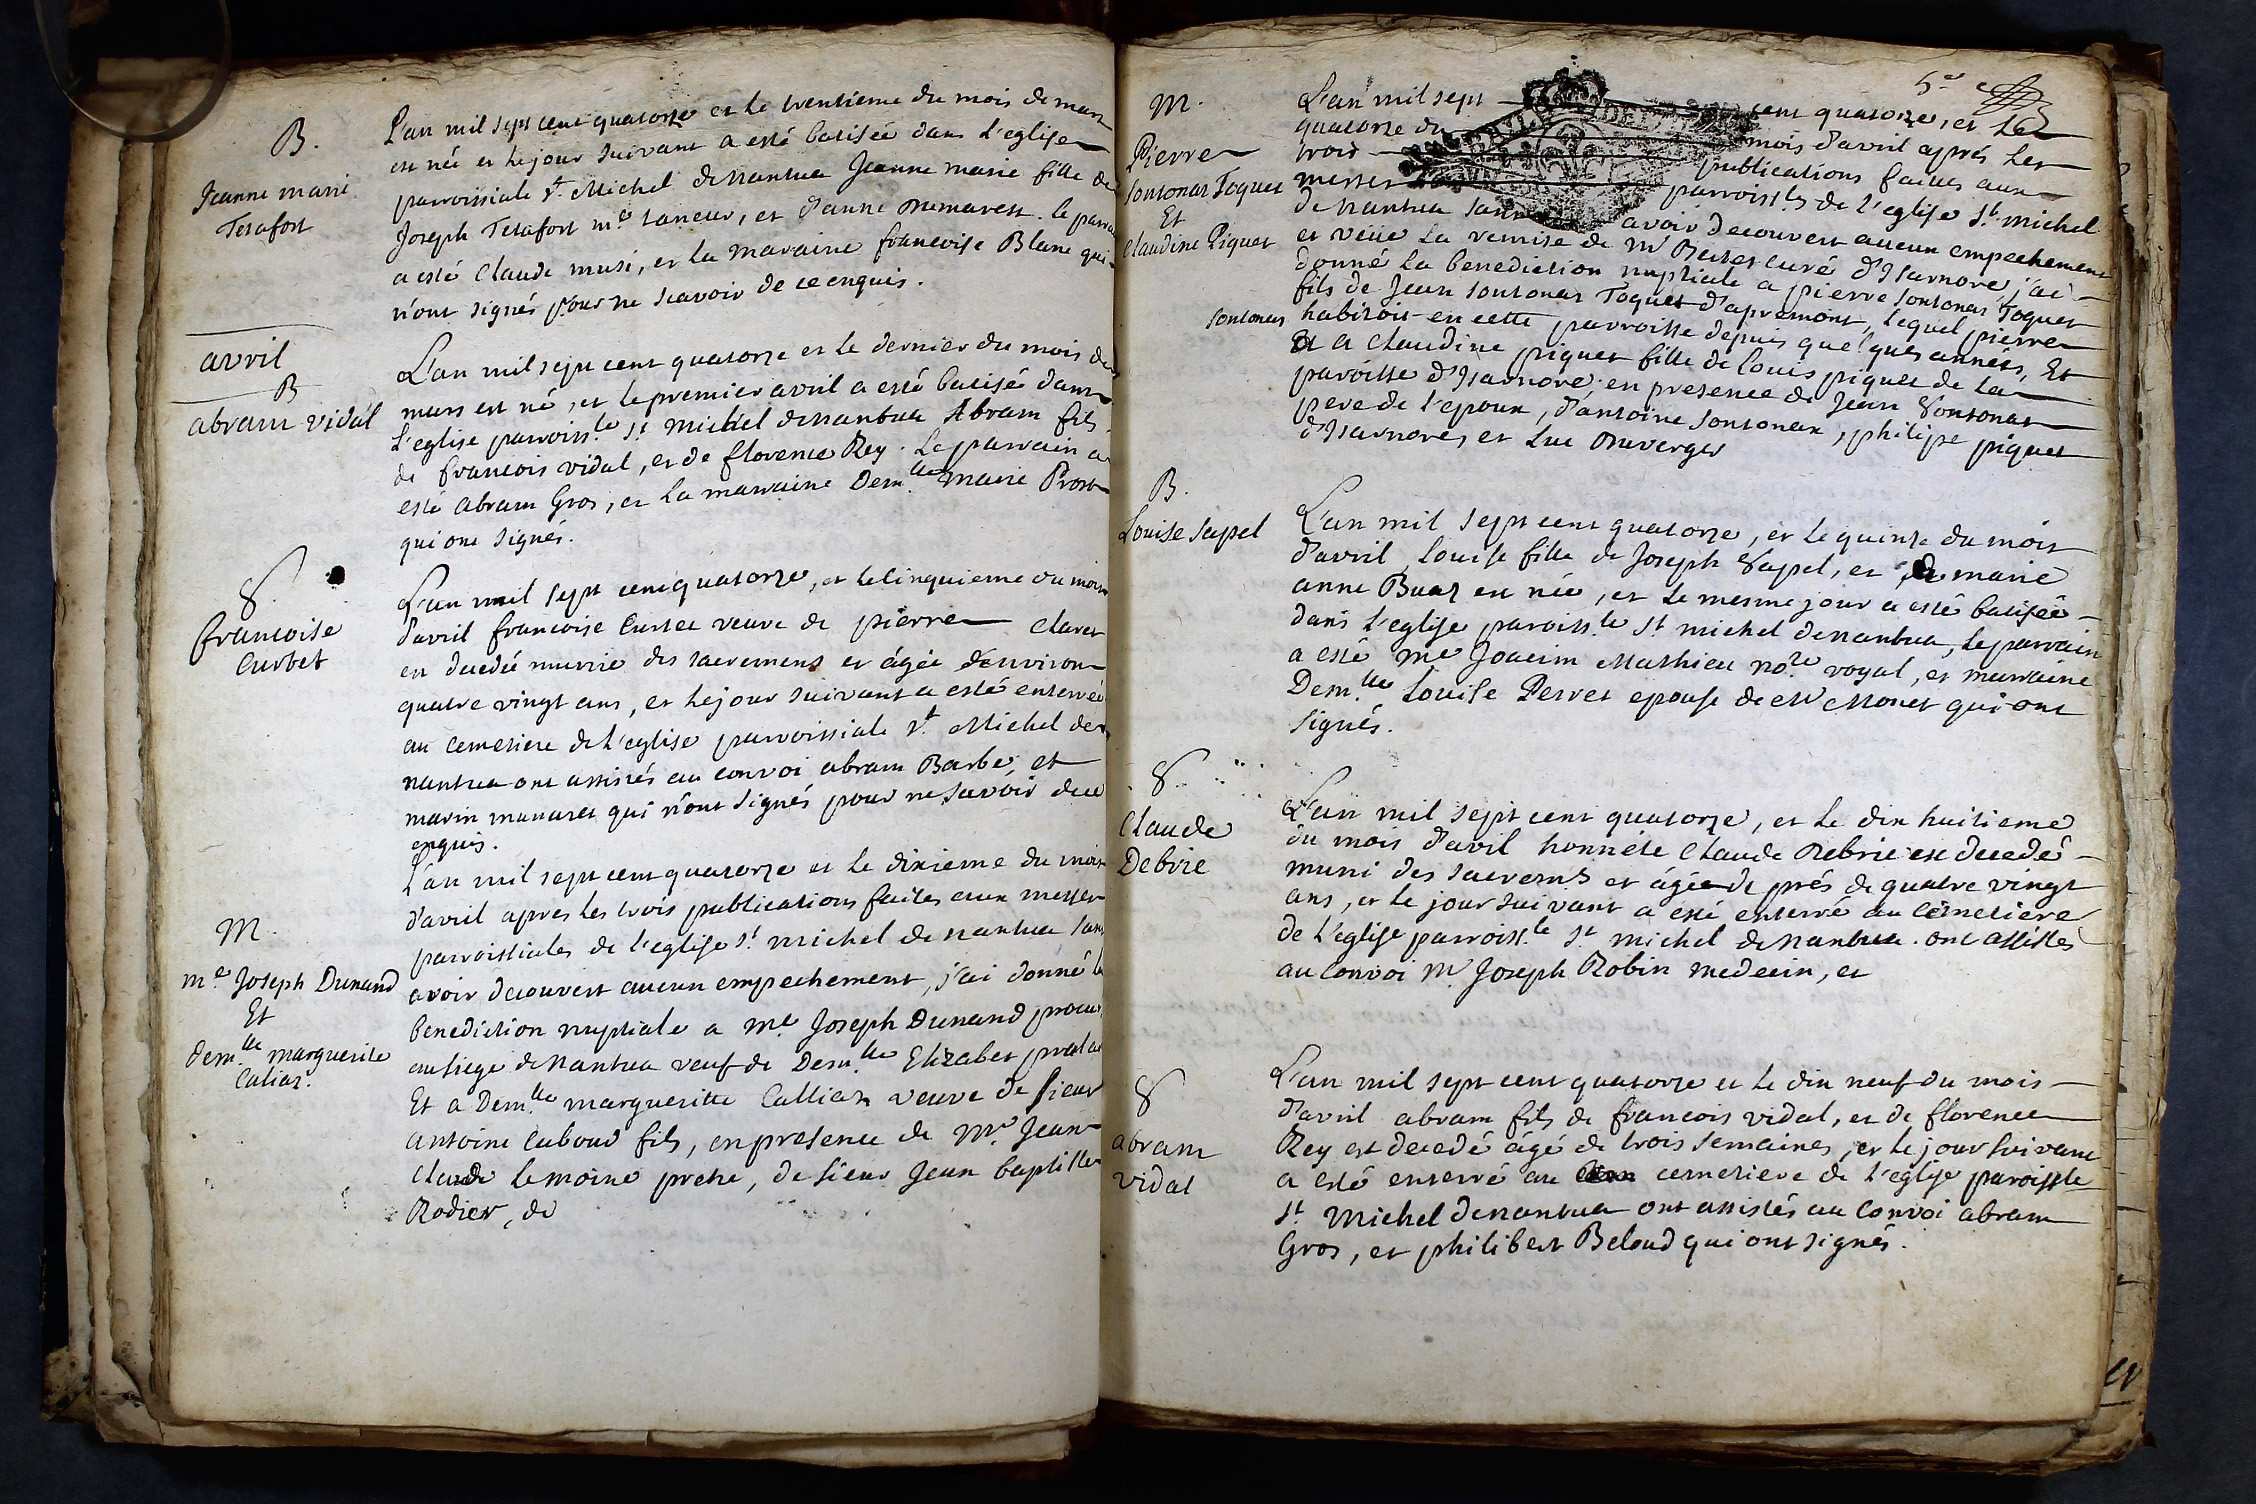 B.
Jeanne marie
Terafort
L'an mil sept cent quatorze et le trentieme du mois de mars
est née et le jour suivant a esté batisée dans l'eglise
parroissiale st Michel de nantua Jeanne marie fille de
Joseph Terafort me taneur, et d'anne
le parrain
a esté Claude musi, et la maraine francoise Blanc qui
n'ont signés pour ne scavoir de ce enquis.
avril
B
abram vidal
L'an mil sept cent quatorze et le dernier du mois de
mars est né, et le premier avril a esté batisé dans
l'eglise parroiss.le st michel de nantua Abram fils
de francois vidal, et de florence Rey. Le parrain a
esté abram Gros, et la marraine Dem.lle marie Prost
qui ont signés.
S.
francoise
Curtet
L'an mil sept cent quatorze, et le cinquieme du mois
d'avril francoise Curtet veuve de pierre Claret
est decedée munie des sacremens et âgée d'environ
quatre vingt ans, et le jour suivant a esté enterrée
au cemetiere de l'eglise parroissiale st Michel de
nantua ont assistés au convoi abram Barbe, et
marin qui n'ont signés pour ne savoir de ce
enquis.
M.
me Joseph Dunand
Et
dem.lle marguerite
Caliaz.
L'an mil sept cent quatorze et le dixieme du mois
d'avril apres les trois publications faites aux messes
parroissiales de l'eglise st michel de nantua sans
avoir decouvert aucun empechement, j'ai donné la
benediction nuptiale a me Joseph Dunand procur
au siege de nantua veuf de Dem.lle Elizabet
Et a Dem.lle margueritte Calliaz veuve de sieur
antoine Caboud fils, en presence de mr. Jean
Claude Lemoine pretre, de sieur Jean baptiste
Rodier, de
5e
M.
Pierre
sontonas Toquet
Et
Claudine Piquet
L'an mil sept cent quatorze, et le
quatorze du mois d'avril aprés les
trois publications faites aux
messes parroiss.les de l'eglise st. michel
de nantua sans avoir decouvert aucun empechement
et veüe la remise de mr curé d'Isarnore, j'ai
donné la benediction nuptiale a pierre sontonas Toquet
fils de Jean sontonas Toquet d'apremont, lequel pierre
sontonas habitoit en cette parroisse depuis quelques années, Et
a Claudine piquet fille de Louis piquet de la
paroisse d'Isarnore en presence de Jean Sontonas
pere de l'epoux, d'antoine sontonax, philipe piquet
d'Isarnore, et Luc
B.
Louise sapel
L'an mil sept cent quatorze, et le quinze du mois
d'avril, Louise fille de Joseph Sapel, et de marie
anne Buaz est née, et le mesme jour a esté batisée
dans l'eglise paroiss.le st michel de nantua, le parrain
a esté me Joacim Mathieu no.re royal, et marraine
Dem.lle Louise Perret epouse de Mr Monet qui ont
signés.
S.
Claude
Debrie
L'an mil sept cent quatorze, et le dix huitieme
du mois d'avil honnéte Claude Debrie est decedé
muni des sacrem.s et âgée de prés de quatre vingt
ans, et le jour suivant a esté enterré au cemetiere
de l'eglise parroiss.le st michel de nantua. ont assistés
au convoi mr. Joseph Robin medecin, et
S
abram
vidal
L'an mil sept cent quatorze et le dix neuf du mois
d'avril abram fils de francois vidal, et de florence
Rey est decedé âgé de trois semaines, et le jour suivant
a esté enterré au cemetiere de l'eglise paroissle
st. Michel de nantua ont assistés au convoi abram
Gros, et philibert Beloud qui ont signés.